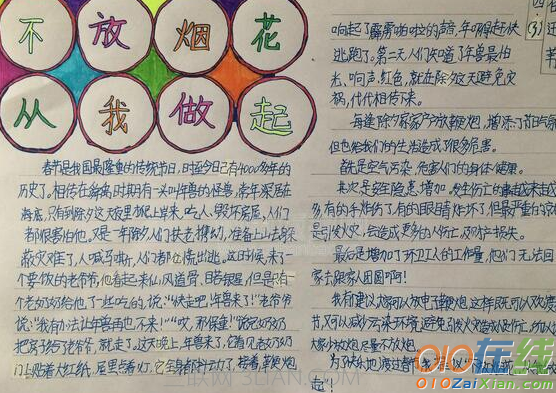 不放烟花
从我做起
春节是我国最隆重的传统节日，时至今日已有4000多年的
历史了。相传在尧舜时期有一头叫年兽的怪兽，常年深居在
海底，只有到除夕这天夜里才爬上岸来，吃人、毁坏房屋，人们
都很害怕他。又是一年除夕人们扶老携幼，准备上山去躲
避灾难了，人喊马嘶，人们都仓慌出逃。这时候，来了一
个要饭的老爷爷，他看起来仙风道骨、目若朗星，但是有一
个老奶奶给他了一些吃的，说："快走吧，年兽来了！"老爷爷
说："我有办法让年兽再也不来！""哎，那保重！"说完奶奶
把房子给老爷爷，就走了。这天晚上，年兽来了，它看见老奶奶
门上贴着大红纸，屋里点着灯，它全身都抖动了，接着，草炮烟
响起了霹雳啪啦的声音，年吓得赶快
逃跑了。第二天人们知道了年兽最怕
光、响声、红色，就在除夕这天避免灾
祸，代代相传下来。
每逢除夕家家户户放鞭炮，增添了节日气氛
但也给我们的生活造成了很多危害。
首先是空气污染，危害人们的身体健康。
其次是安全隐患增加。发生伤亡的事故越来越
多，有的手炸伤了，有的眼睛炸坏了，但最严重的
是引发火灾，会造成更多的人伤亡，及财产损失。
最后是增加了环卫工人的工作量，他们无法回
家去跟家人团圆啊！
我有建议大家可以放电子鞭炮，这样既可以欢度
节，又可以减少污染环境，避免引发火灾
家少放炮尽量不放炮。
为了快乐地渡过春节
起！
四
(3)
还
010在线
010ZaiXian.com
3LIAN.COM